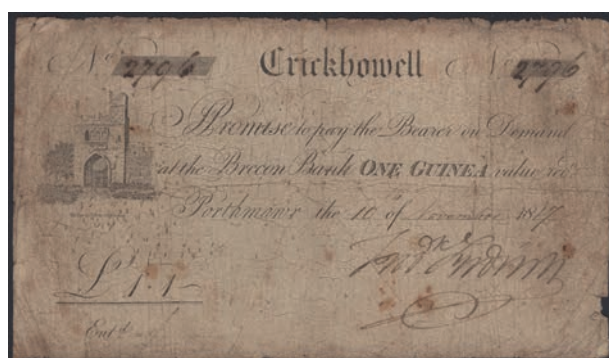 No 2796 Crickhowell No 2796
I Promise to pay the Bearer on Demand
at the Brecon Bank ONE GUINEA value recd
Porthmawr the 10 of 1817
£1.1-
Entd